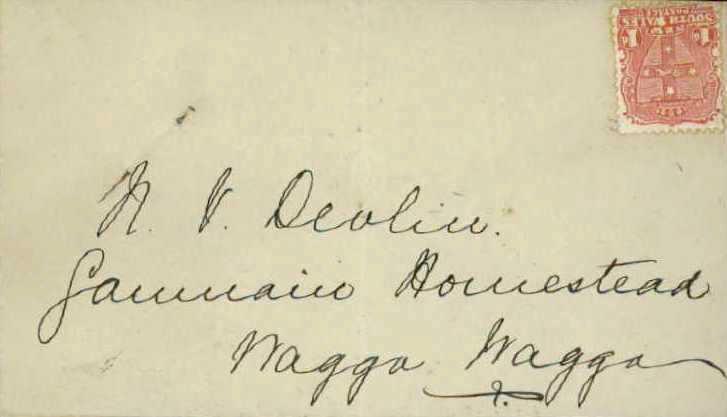 SOUTH WALES
POSTAGE
1D
1D
N. V. Devlin.
Gammain Homestead
Wagga Wagga